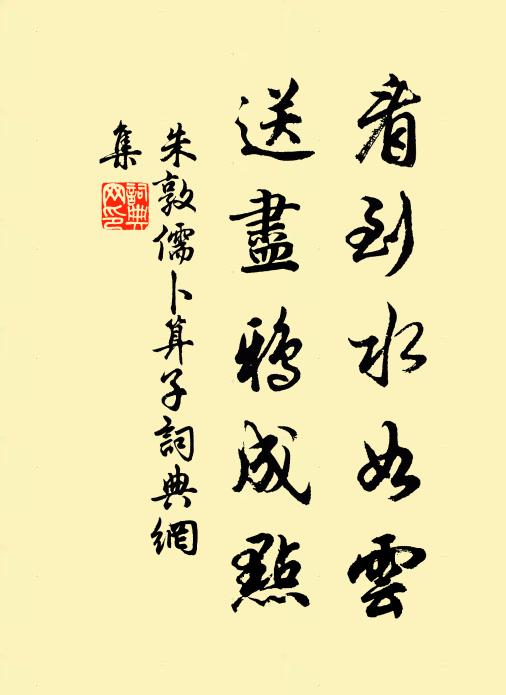 看到水如雲
送盡鴉成點
朱敦儒卜算子詞典網
集
詞典網印